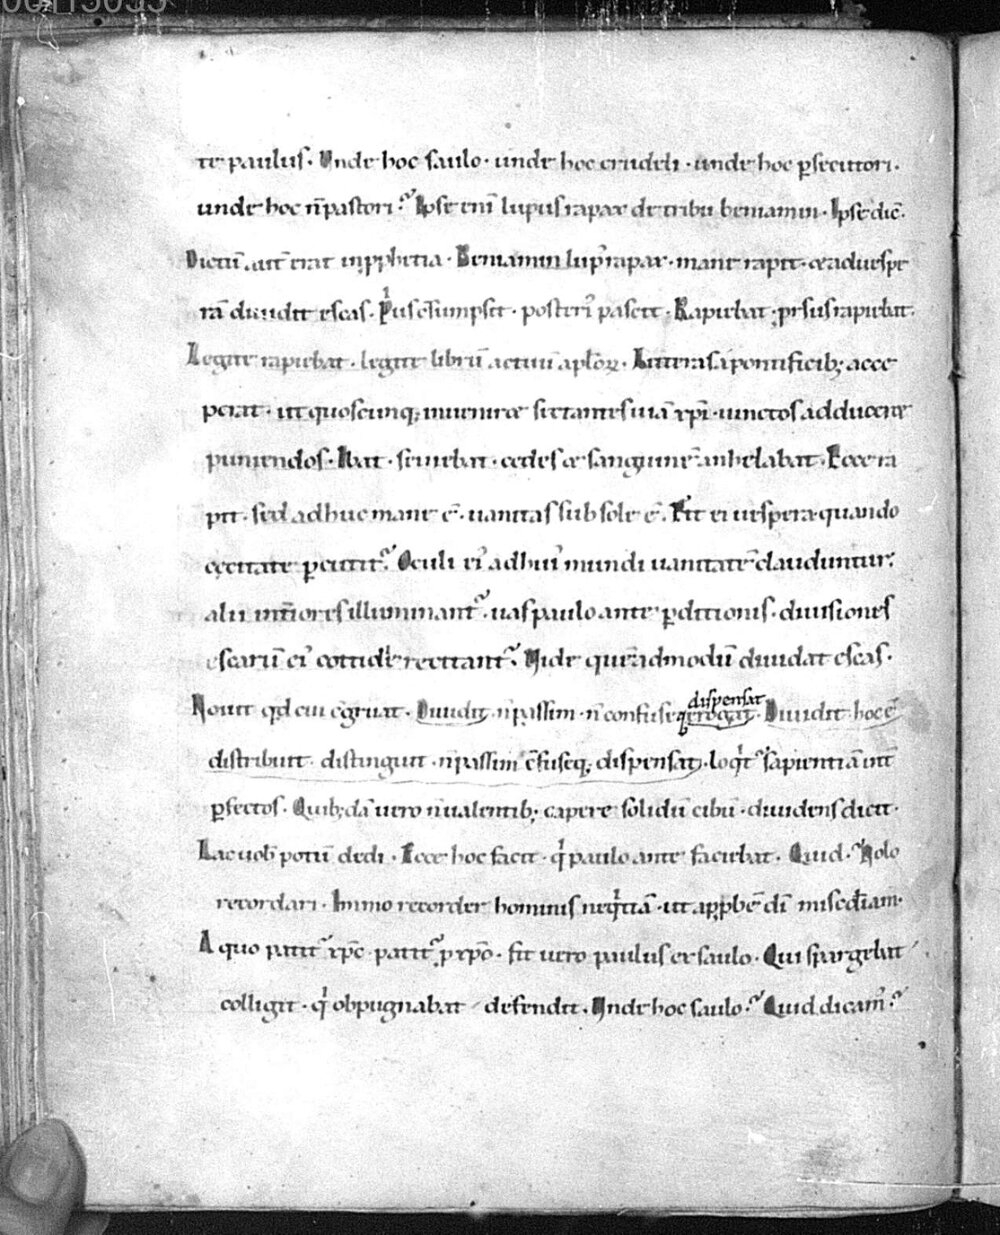 te paulus· Vnde hoc saulo· unde hoc crudeli· unde hoc ꝑsecutori·
unde hoc n̄ pastori? Ipse eni̅ lupus rapax de tribu beniamin· Ipse dic̅·
Dictu̅ aut̅ erat in ꝓphetia· Beniamin lup᾽ rapax· mane rapit· & ad uespe
ra̅ diuidit escas· Pͥus c̅sumpsit· posteri᾽ pascit· Rapiebat· prsus rapiebat·
Legite rapiebat· legite libru̅ actuu̅ aplo̅ꝝ· Litteras a pontificib; acce
perat· ut quoscunq; inueniret sectantes uia̅ xp̅i· uinctos adduceret
puniendos· Ibat· seuiebat· cedes & sanguine̅ anhelabat· Ecce ra
pit· sed adhuc mane e̅· uanitas sub sole e̅· Fit ei uespera quando
cecitate ꝑcutit᾽· Oculi ei᾽ ad hui᾽ mundi uanitate̅ clauduntur·
alii int̅iores illuminant᾽· uas paulo ante ꝑditionis· diuisiones
escaru̅ ei᾽ cottidie recitant᾽· Vide que̅admodu̅ diuidat escas·
Nouit qd cui c̅gruat· Diuidit· n̄ passim· n̄ confuse
dispensat
erogat· Diuidit· hoc e̅
distribuit· distinguit· n̄ passim c̅fuseq; dispensat· loqͥt᾽ sapientia̅ int̅
ꝑfectos· Quib;da̅ uero n̄ ualentib; capere solidu̅ cibu̅· diuidens dicit·
Lac uob̅ potu̅ dedi· Ecce hoc facit· qͥ paulo ante faciebat· Quid? Nolo
recordari· Immo recorder hominis neqͥtia̅· ut app̱be̅ di̅ misc̅dia̅·
A quo patit᾽ xp̅c· patit᾽ ꝓ xp̅o· fit uero paulus ex saulo· Qui spargebat
colligit· qͥ obpugnabat defendit· Vnde hoc saulo? Quid dicam᾽?